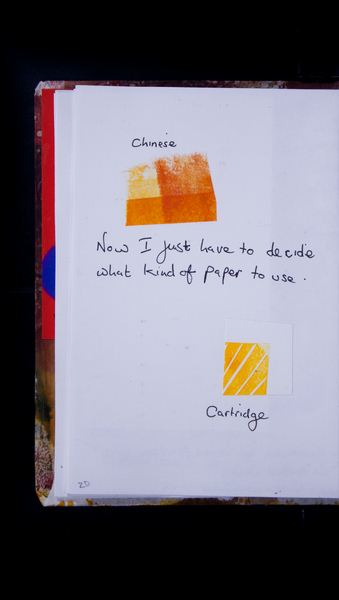 Chinese
Now I just have to decide
what kind of paper to use.
Cartridge